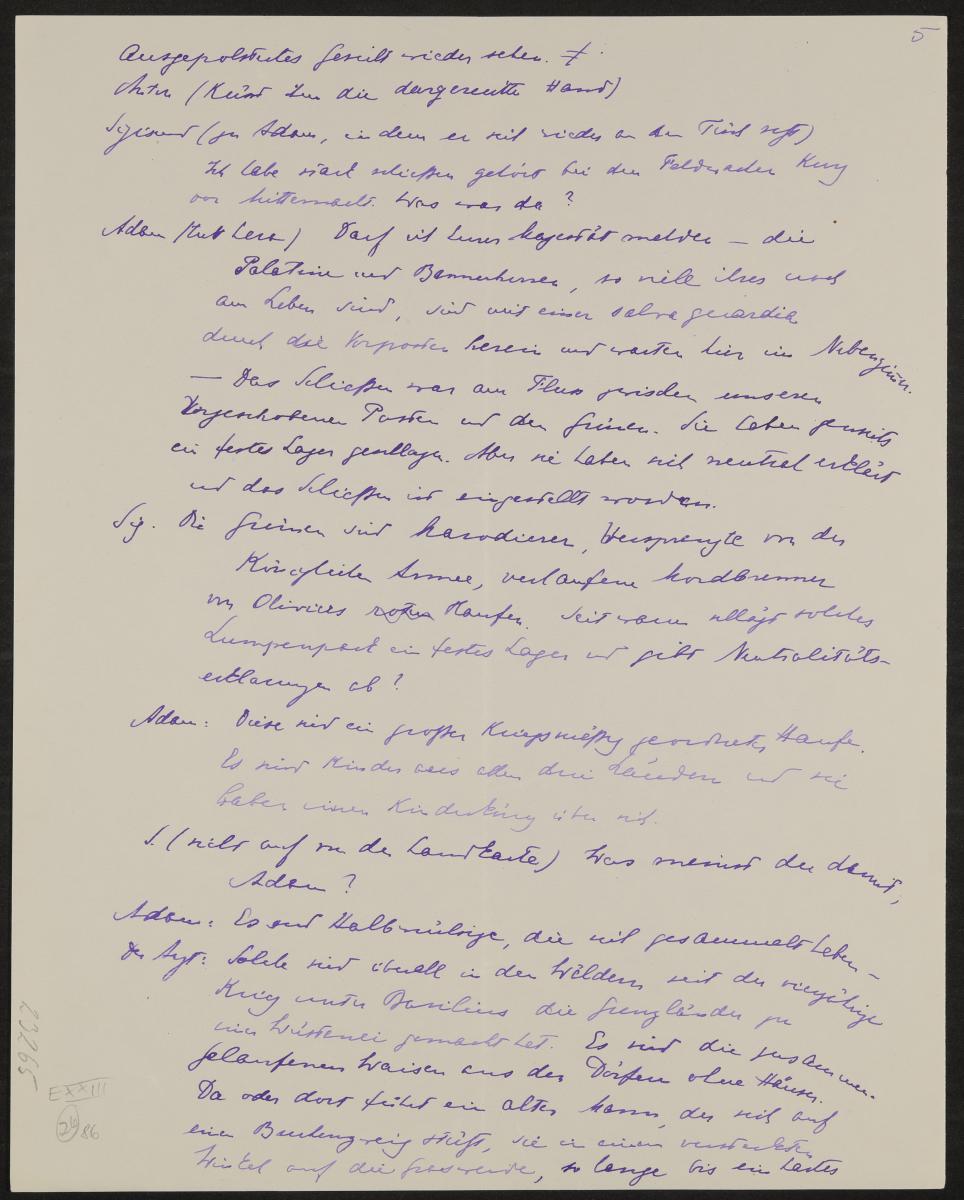 5
Ausgepolstertes Gesicht wieder sehen. ≠
Anton (Küsst ihm die dargereichte Hand)
Sigismund (zu Adam, indem er sich wieder an den Tisch setzt)
Ich habe stark schießen gehört bei den Feldwachen kurz
vor Mitternacht. Was war da?
Adam (tritt heran) Darf ich Eurer Majestät melden — die
Palatine und Bannerherren, so viele ihrer noch
am Leben sind, sind mit einer salva guardia
durch die Vorposten herein und warten hier im Nebenzimm.
— Das Schießen war am Fluss zwischen unseren
Vorgeschobenen Posten und den Grünen. Sie haben jenseits
ein festes Lager geschlagen. Aber sie haben sich neutral erklärt
und das Schießen ist eingestellt worden.
Sig. Die Grünen sind Marodierer, Versprengte von der
Königlichen Armee, verlaufene Mordbrenner
von Oliviers rotem Haufen. Seit wann schlägt solches
Lumpenpack ein festes Lager und gibt Neutralitäts-
erklärungen ab?
Adam: Diese sind ein großer Kriegsmäßig geordneter Haufe.
Es sind Kinder aus allen drei Ländern und sie
haben einen Kinderkönig über sich.
S. (sieht auf von der Landkarte) Was meinst du damit,
Adam?
Adam: Es sind Halbwüchsige, die sich gesammelt haben —
Der Arzt: Solche sind überall in den Wäldern seit der vierjährige
Krieg unter Basilius die Grenzländer zu
einer Wüstenei gemacht hat. Es sind die zusammen-
gelaufenen Waisen aus den Dörfern ohne Häuser.
Da oder dort führt ein alter Mann, der sich auf
einen Buchenzweig stützt, sie in einen versteckten
Winkel auf die Grasweide, so lange bis ein hartes
23266
EXXIII
24 86